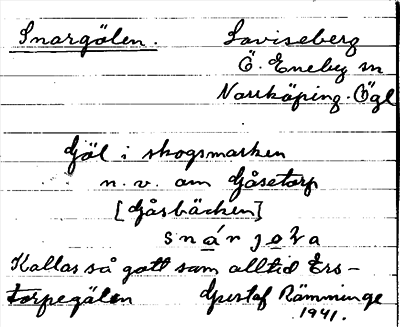 Snargölen. Loviseberg
Ö. Eneby sn
Norrköping. Ögl
Göl i skogsmarken
n.v. om Gåsetorp
[Gåsbäcken]
snánjola
Kallas så gott som alltid Ers-
torpegölen Gustaf Rämminge
1941.